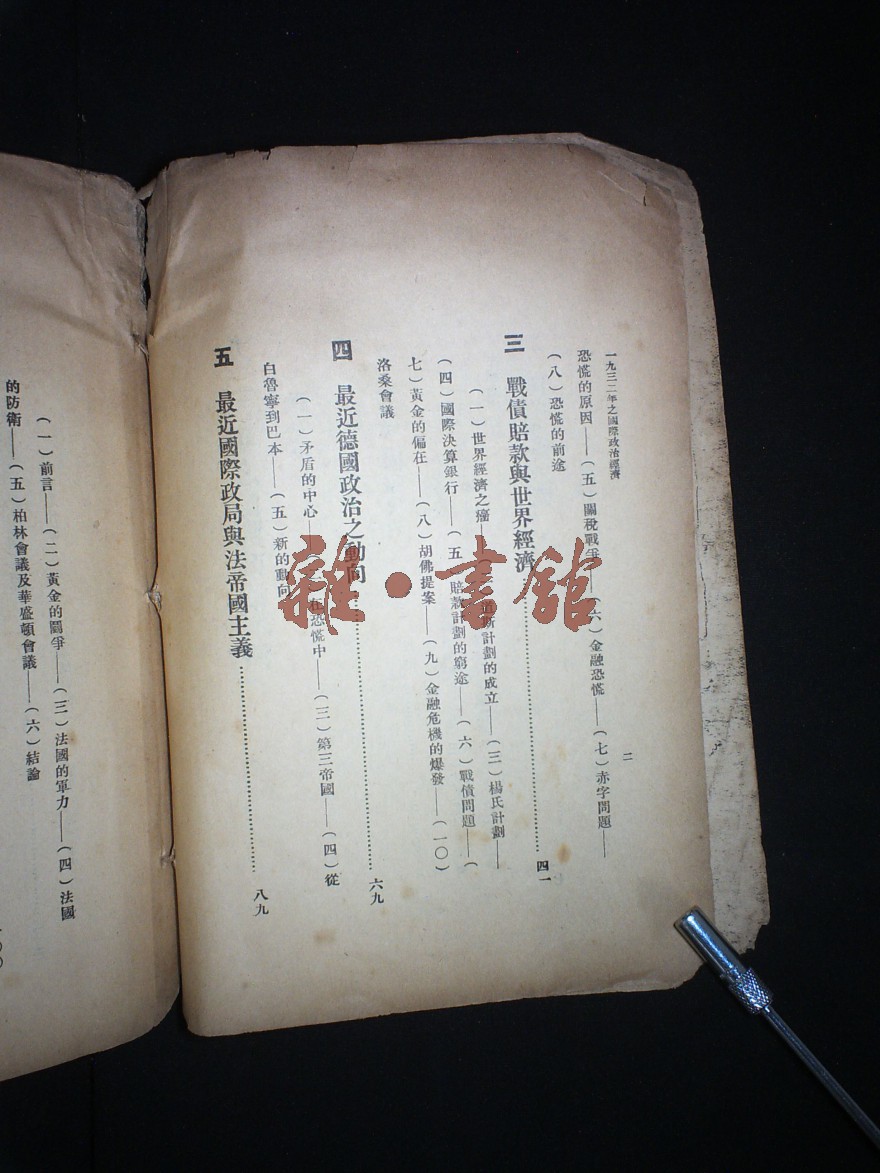 一九三二年之國際政治經濟
二
恐慌的原因——(五)關稅戰爭——(六)金融恐慌——(七)赤字問題——
(八)恐慌的前途
三 戰債賠款與世界經濟 四一
(一)世界經濟之癌 計劃的成立——(三)楊氏計劃——
(四)國際決算銀行——(五)賠款計劃的窮途——(六)戰債問題——(
七)黃金的偏在——(八)胡佛提案——(九)金融危機的爆發——(一〇)
洛桑會議
四 最近德國政治之動向 六九
(一)矛盾的中心 在恐慌中——(三)第三帝國——(四)從
白魯寧到巴本——(五)新的動向
五 最近國際政局與法帝國主義 八九
(一)前言——(二)黃金的鬭爭——(三)法國的軍力——(四)法國
的防衛——(五)柏林會議及華盛頓會議——(六)結論
雜·書館